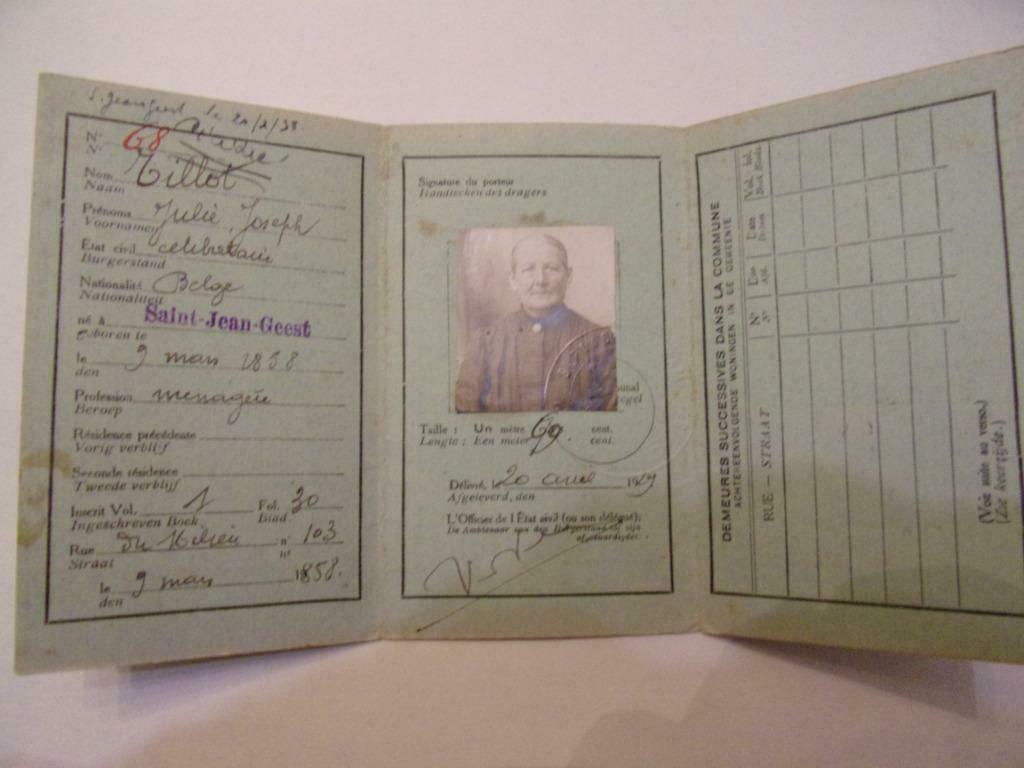 le 20/2/38
N. N°. 68
Nom Tillot
Naam
Prénoms Julie, Joseph
Voornamen
État civil célibataire
Burgerstand
Nationalité Belge
Nationaliteit
né à Saint-Jean-Geest
geboren te
le 9 mars 1858
den
Profession ménagère
Beroep
Résidence précédente
Vorig verblijf
Seconde résidence
Tweede verblijf
Inscrit Vol. 1 Fol. 30
Ingeschreven Boek Blad.
Rue du Milieu n° 103
Straat nr
le 9 mars 1858.
den
Signature du porteur
Handteeken des dragers
Taille : Un mètre cent.
Lengte : Een meter cent.
Délivré, le 20 avril 1919
Afgeleverd, den
L'Officier de l'État civil (ou son délégué);
De Ambtenaar van den Burgerstand of zijn
afgevaardigde.
DEMEURES SUCCESSIVES DANS LA COMMUNE
ACHTEREENVOLGENDE WONINGEN IN DE GEMEENTE
RUE — STRAAT
N°
Nr
Date
Vol. fol.
(Voir suite au verso.)
(Zie keerzijde.)